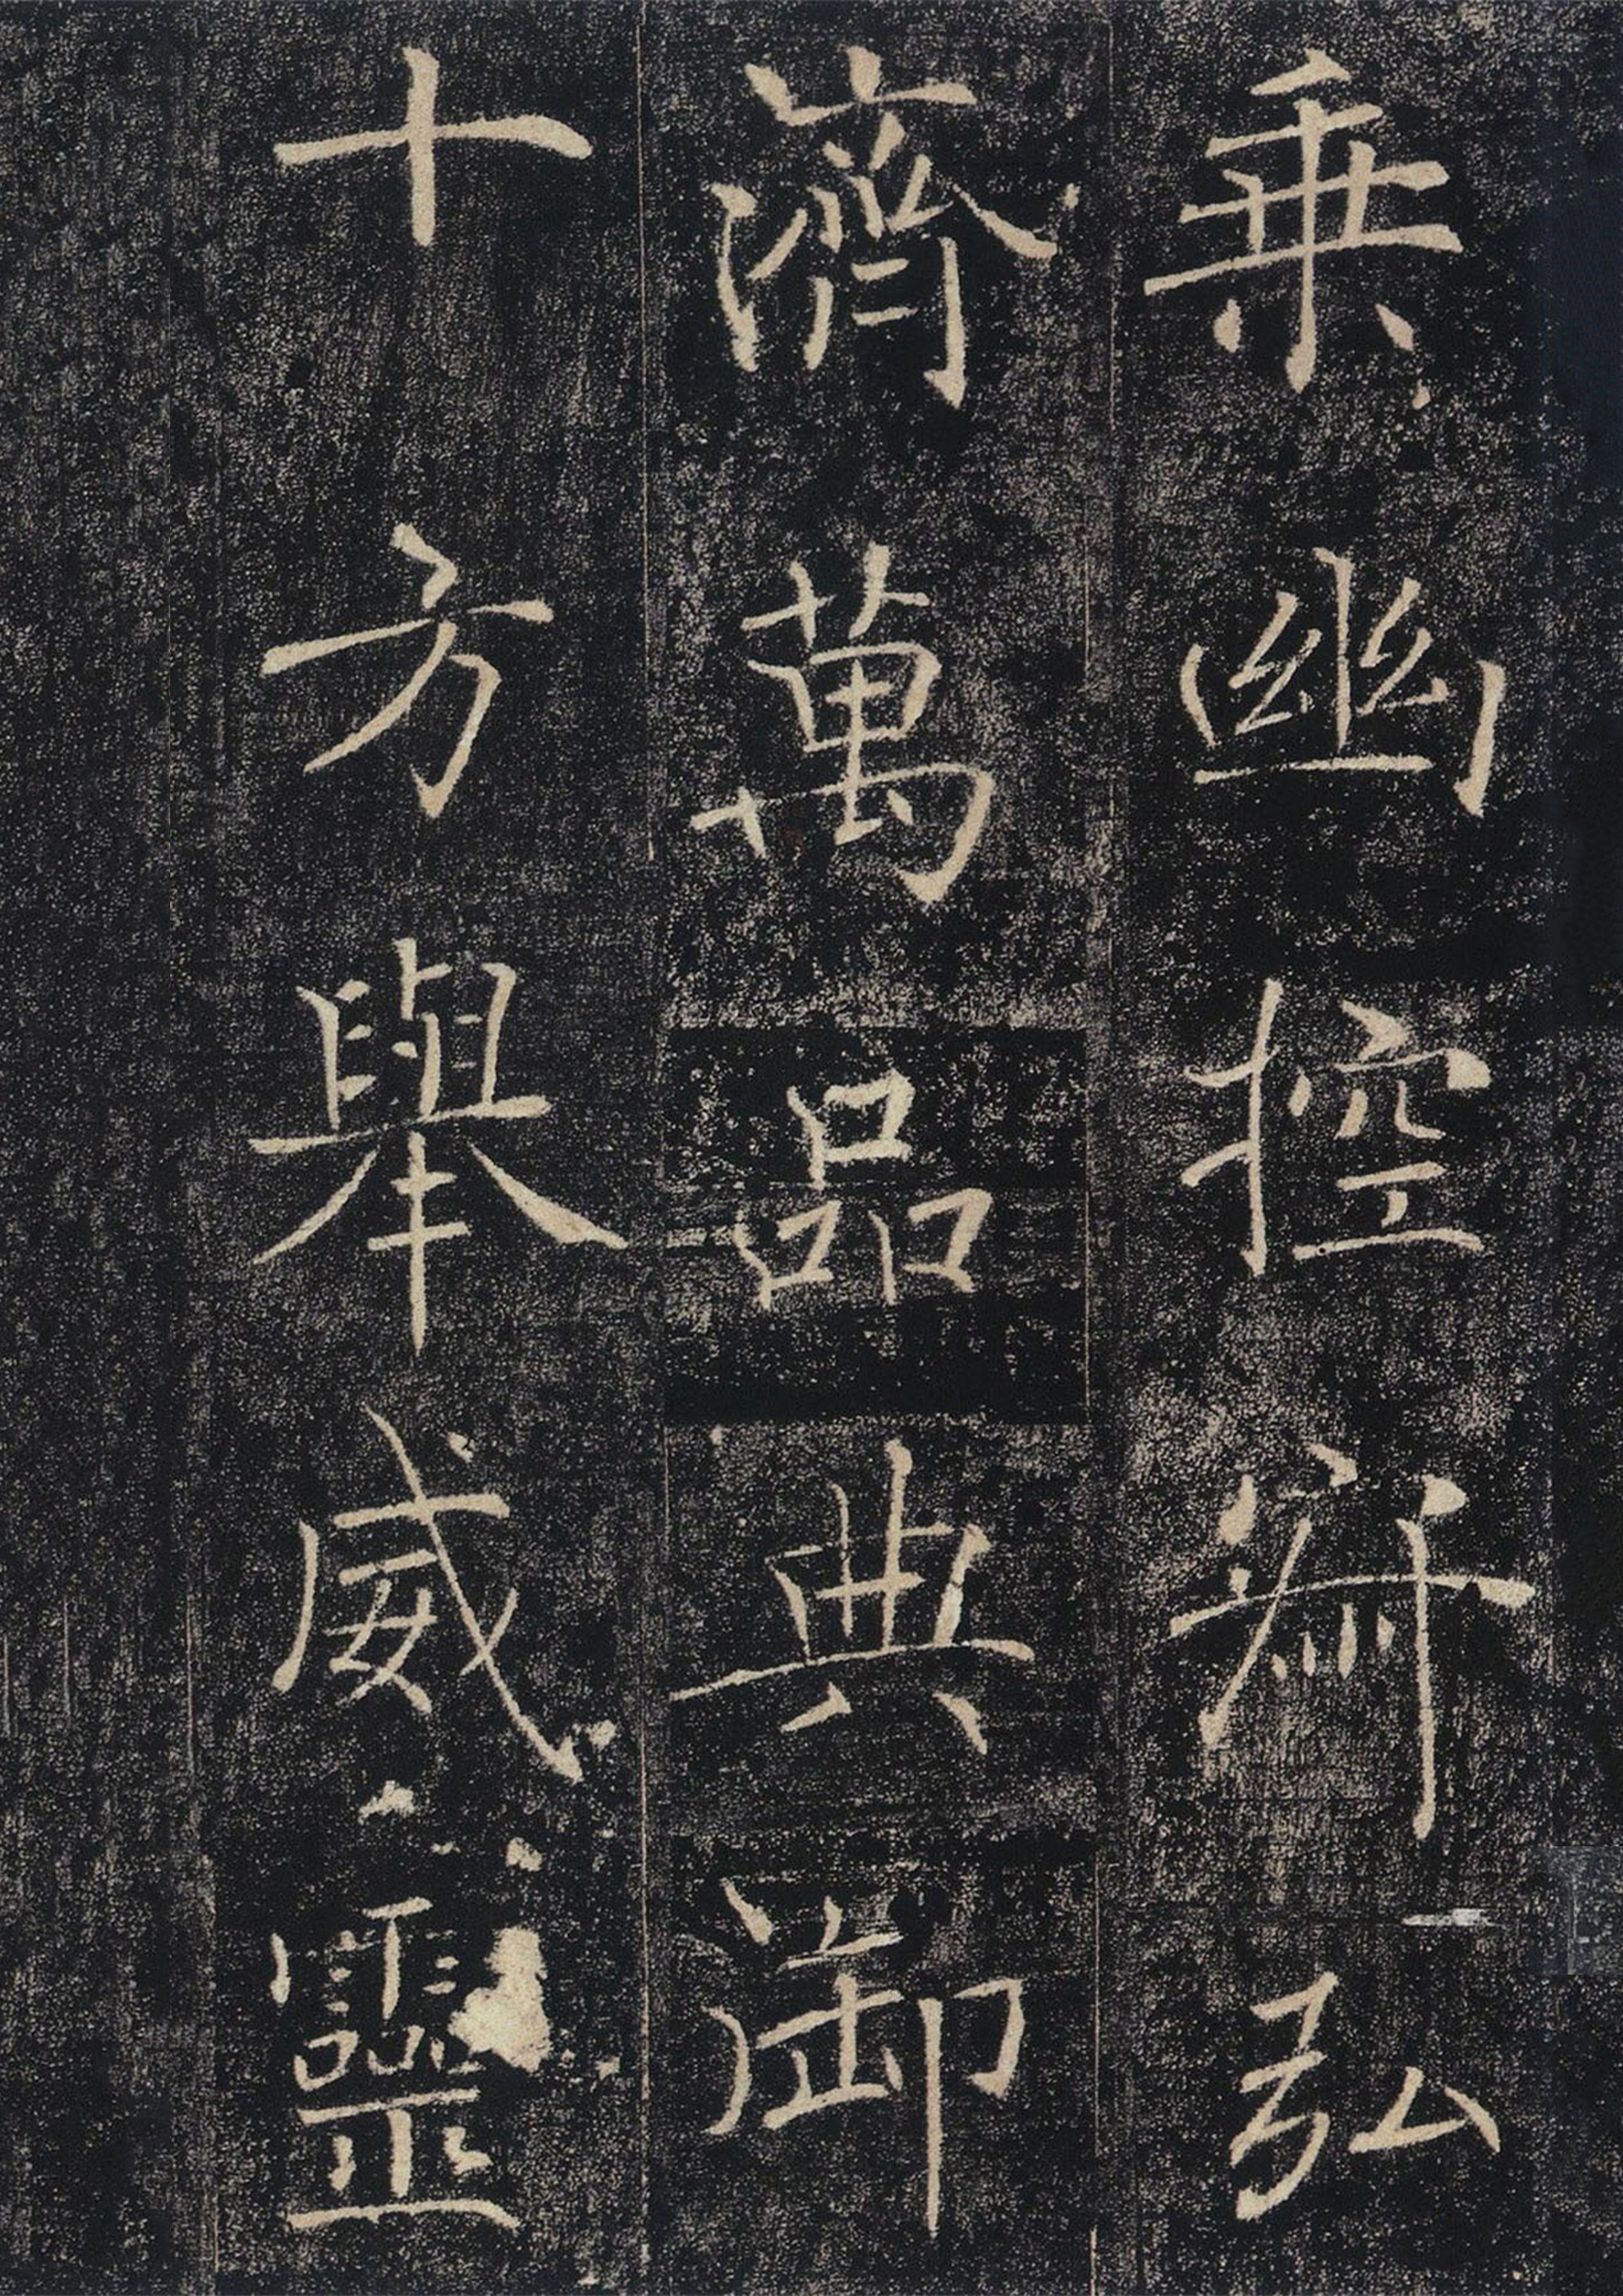 乗幽控寂弘
濟萬品典御
十方舉威靈